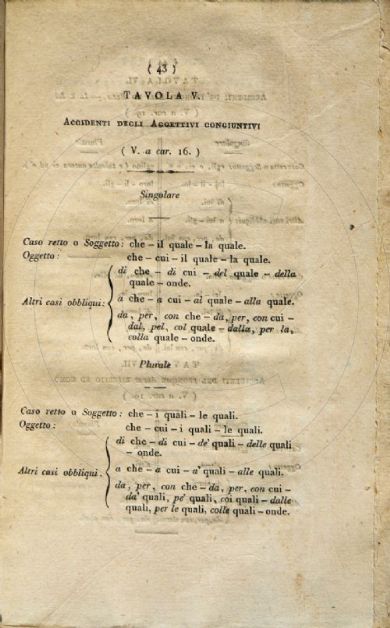 ( 43 )
TAVOLA V.
ACCIDENTI DEGLI AGGETTIVI CONGIUNTIVI
( V. a car. 16. )
Singolare
Caso retto o Soggetto: che – il quale – la quale.
Oggetto: che – cui – il quale – la quale.
Altri casi obbliqui: di che – di cui – del quale – della
quale – onde.
a che – a cui – al quale – alla quale.
da, per, con che – da, per, con cui –
dal, pel, col quale – dalla, per la,
colla quale – onde.
Plurale
Caso retto o Soggetto: che – i quali – le quali.
Oggetto: che – cui – i quali – le quali.
Altri casi obbliqui: di che – di cui – de' quali – delle quali
– onde.
a che – a cui – a' quali – alle quali.
da, per, con che – da, per, con cui –
da' quali, pe' quali, coi quali – dalle
quali, per le quali, colle quali – onde.